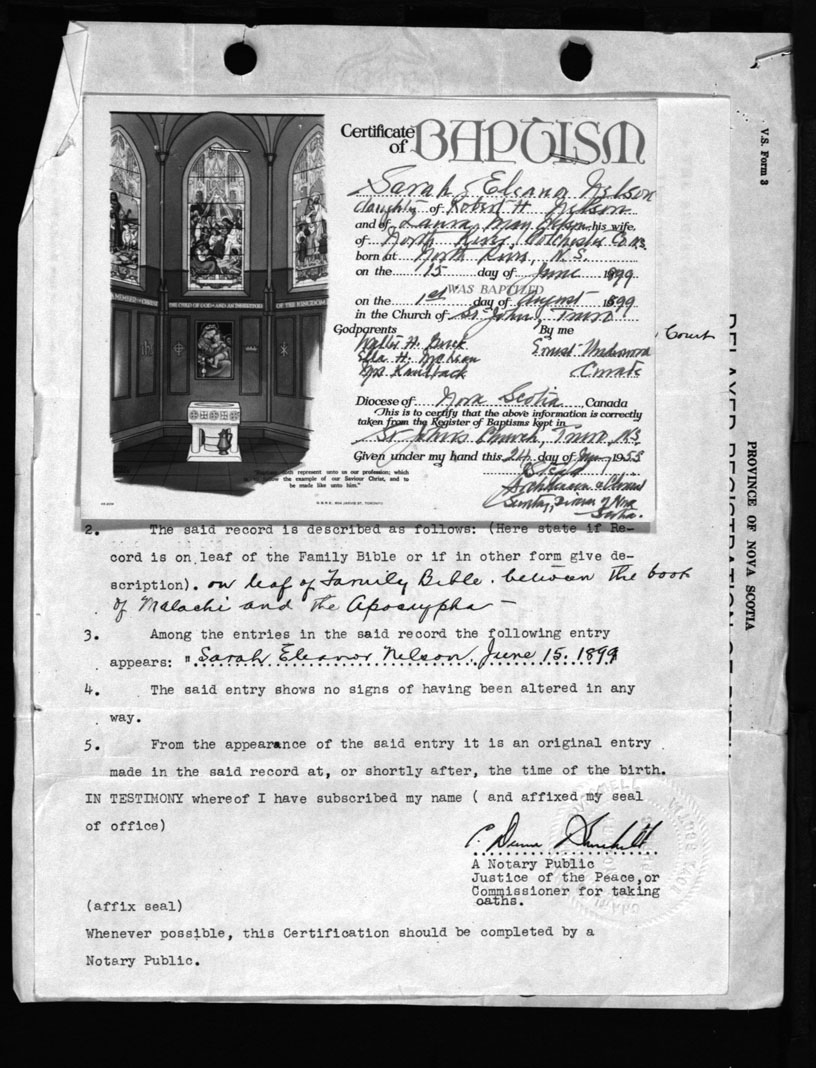 Certificate of BAPTISM
Sarah Eleanor Nelson
daughter of Robert H Nelson
and of Laura May his wife,
of North River, Colchester Co. N.S.
born at North River, N.S.
on the 15 day of June 1899
WAS BAPTIZED
on the 1st day of August 1899
in the Church of St. John, Truro
Godparents By me
Walter H.
Ella H. McKean Ernest Underwood
Mrs Kaulback Curate
Diocese of Nova Scotia, Canada
This is to certify that the above information is correctly
taken from the Register of Baptisms kept in
St Johns Church, Truro, N.S.
Given under my hand this 24 day of 1955
Nova
Scotia.
MEMBER OF CHRIST THE CHILD OF GOD AND AN INHERITOR OF THE KINGDOM
represent unto us our profession; which
the example of our Saviour Christ, and to
be made like unto him."
TORONTO
2. The said record is described as follows: (Here state if Re-
cord is on leaf of the Family Bible or if in other form give de-
scription). on leaf of Family Bible. between the book
of Malachi and the Apocrypha —
3. Among the entries in the said record the following entry
appears: "Sarah Eleanor Nelson, June 15. 1899
4. The said entry shows no signs of having been altered in any
way.
5. From the appearance of the said entry it is an original entry
made in the said record at, or shortly after, the time of the birth.
IN TESTIMONY whereof I have subscribed my name ( and affixed my seal
of office)
A Notary Public
Justice of the Peace,or
Commissioner for taking
oaths.
(affix seal)
Whenever possible, this Certification should be completed by a
Notary Public.
V.S. Form 3
PROVINCE OF NOVA SCOTIA
DELAYED REGISTRATION OF BIRTH
Court